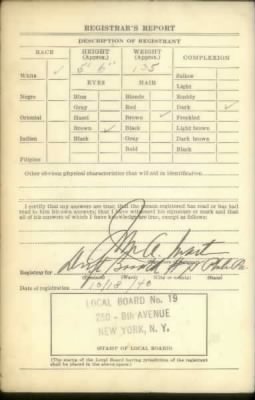 REGISTRAR'S REPORT
DESCRIPTION OF REGISTRANT
RACE HEIGHT (Approx.) WEIGHT (Approx.) COMPLEXION
5' 6" 135
White ✓ Sallow
EYES HAIR Light
Negro Blue Blonde Ruddy
Gray Red Dark ✓
Oriental Hazel Brown ✓ Freckled
Brown ✓ Black Light brown
Indian Black Gray Dark brown
Bald Black
Filipino
Other obvious physical characteristics that will aid in identification
I certify that my answers are true; that the person registered has read or has had
read to him his own answers; that I have witnessed his signature or mark and that
all of his answers of which I have knowledge are true, except as follows:
Registrar for
Date of registration 10/18/40
LOCAL BOARD No. 19
250 - 8th AVENUE
NEW YORK, N. Y.
(STAMP OF LOCAL BOARD)
(The stamp of the Local Board having jurisdiction of the registrant
shall be placed in the above space.)